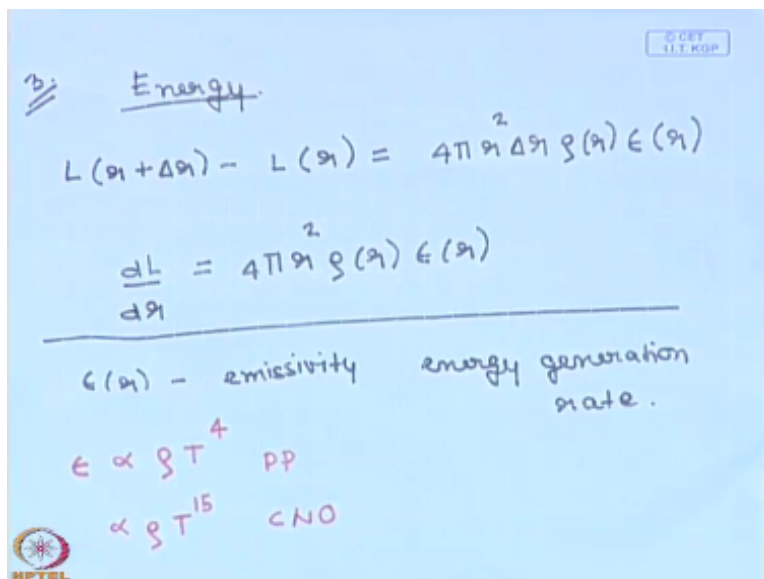 © CET
I.I.T. KGP
3. Energy.
L(r+Δr) - L(r) = 4πr²Δr ρ(r) ε(r)
dL/dr = 4πr² ρ(r) ε(r)
ε(r) - emissivity energy generation
rate.
ε ∝ ρT⁴ PP
∝ ρT¹⁵ CNO
NPTEL